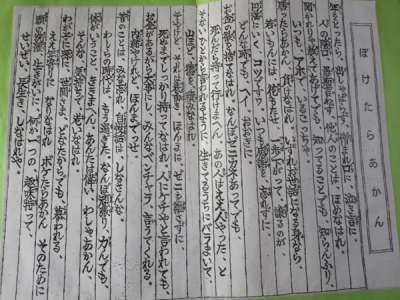 ぼけたらあかん
年をとったら 出しゃばらず 憎まれ口に 泣き言に
人のかげ口 愚痴を言わず 他人のことは ほめなはれ
聞かれりゃ教えてあげても 知ってることでも 知らんふり
いつも アホで いるこっちゃ
勝ったらあかん 負けなはれ いずれお世話になる身なら
若いもんには 花もたせ 一歩下がって 譲るのが
円満にいく コツですワ いつも感謝を 忘れずに
どんな時でも へイ おおきに
お金の欲を 捨てなはれ なんぼゼニカネあってでも
死んだら持って行けまへん あの人はええ人やった と
そないに人から言われるように 生きてるうちに バラまいて
山ほど徳を 積みなはれ
そやけど それは表向き ほんまは ゼニを離さずに
死ぬまでしっかり持ってなはれ 人にケチやと言われても
お金があるから大事にし みんなベンチャラ 言うてくれる
内緒やけれど ほんまだっせ
昔のことは みな忘れ 自慢話は しなさんな
わしらの時代は もう過ぎた なんぼ頑張り 力んでも
体がいうこと ききまへん あんたは偉い わしゃあかん
そんな気持ちで おりなはれ
わが子に孫に 世間さま どなたからでも 慕われる
ええ年寄りに なりなはれ ボケたらあかん そのために
頭の洗濯 生きがいに 何か一つの 趣味持って
せいぜい 長生き しなはれや